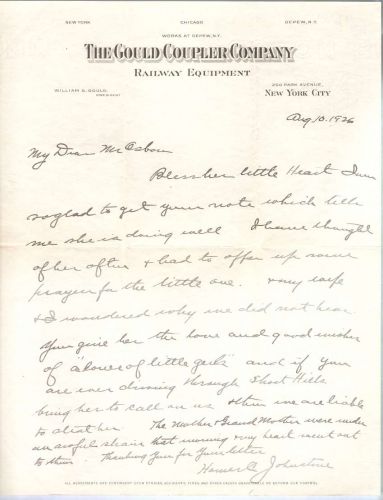 NEW YORK CHICAGO DEPEW, N.Y.
WORKS AT DEPEW, N.Y.
THE GOULD COUPLER COMPANY
RAILWAY EQUIPMENT
WILLIAM S. GOULD,
PRESIDENT
250 PARK AVENUE,
NEW YORK CITY
Aug 10. 1926
My Dear Mr Osborn
Bless her little Heart I am
so glad to get your note which tells
me she is doing well I have thought
of her often & had to offer up some
prayer for the little one. & my wife
& I wondered why we did not hear.
You give her the love and good wishes
of "a lover of little girls" and if you
are ever driving through Short Hills
bring her to call on us & then we are liable
to steal her. The Mother & Grand Mother were under
an awful strain that morning & my heart went out
to them. Thanking you for your letter
Homer C Johnstone
ALL AGREEMENTS ARE CONTINGENT UPON STRIKES, ACCIDENTS, FIRES AND OTHER CAUSES UNAVOIDABLE OR BEYOND OUR CONTROL